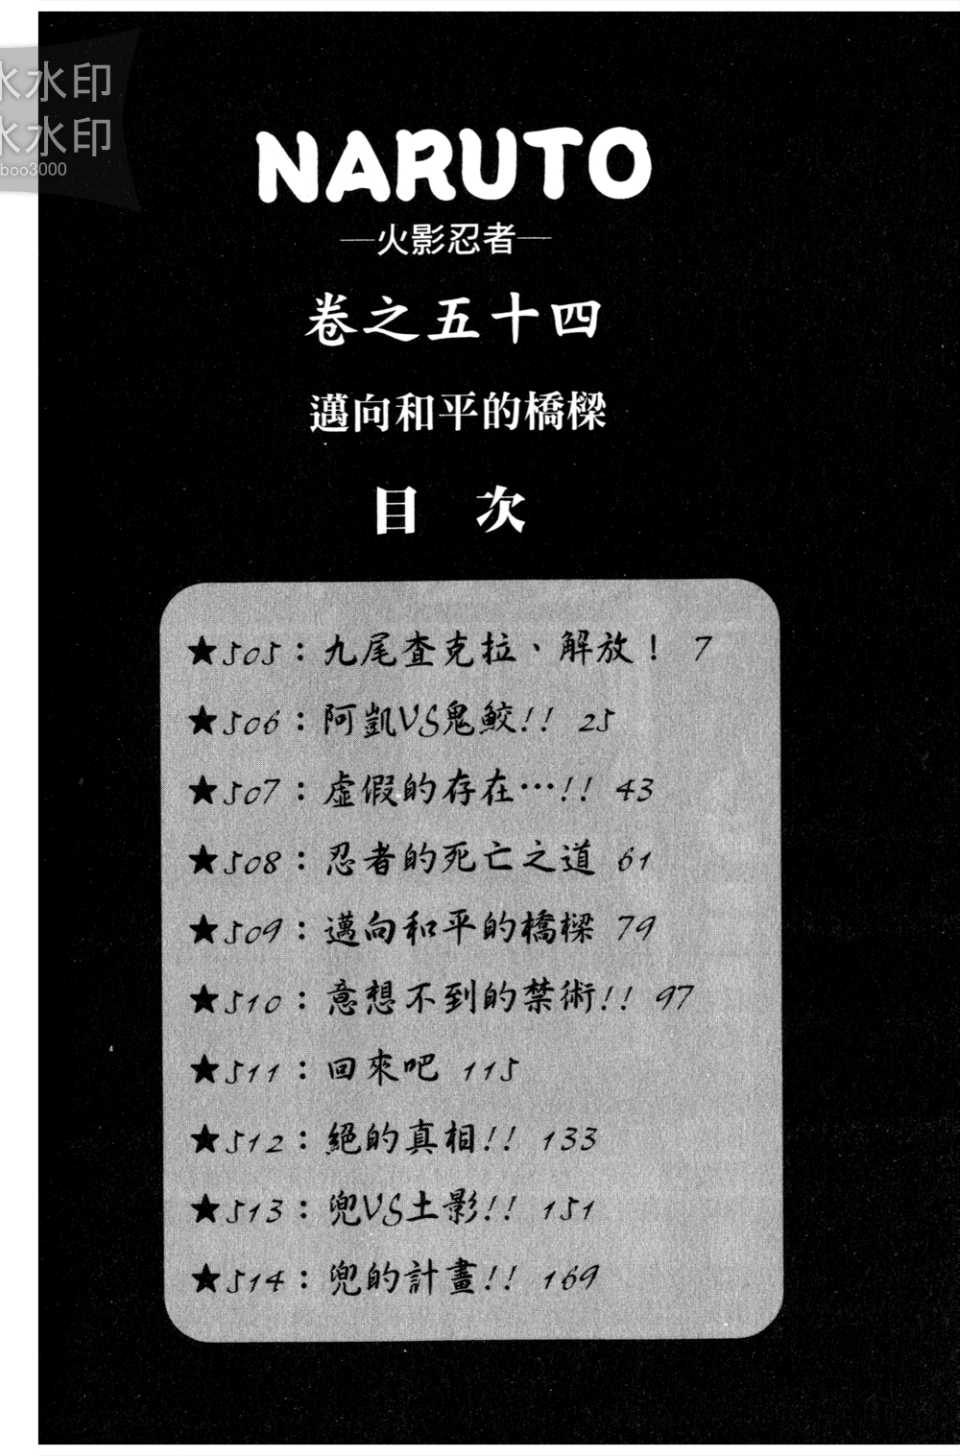 水水印
水水印
boo3000
NARUTO
—火影忍者—
卷之五十四
邁向和平的橋樑
目 次
★505：九尾查克拉、解放！ 7
★506：阿凱VS鬼鮫!! 25
★507：虛假的存在…!! 43
★508：忍者的死亡之道 61
★509：邁向和平的橋樑 79
★510：意想不到的禁術!! 97
★511：回來吧 115
★512：絕的真相!! 133
★513：兜VS土影!! 151
★514：兜的計畫!! 169